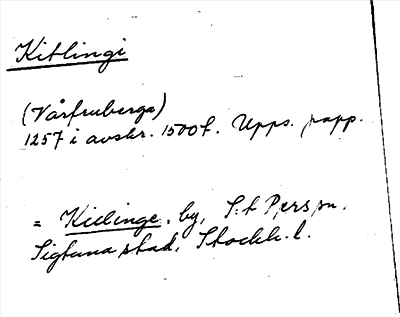 Kitlingi
(Vårfruberga)
1257 i avskr. 1500 t. Upps. papp.
= Kielinge, by, S:t Pers sn.
Sigtuna stad, Stockh. l.